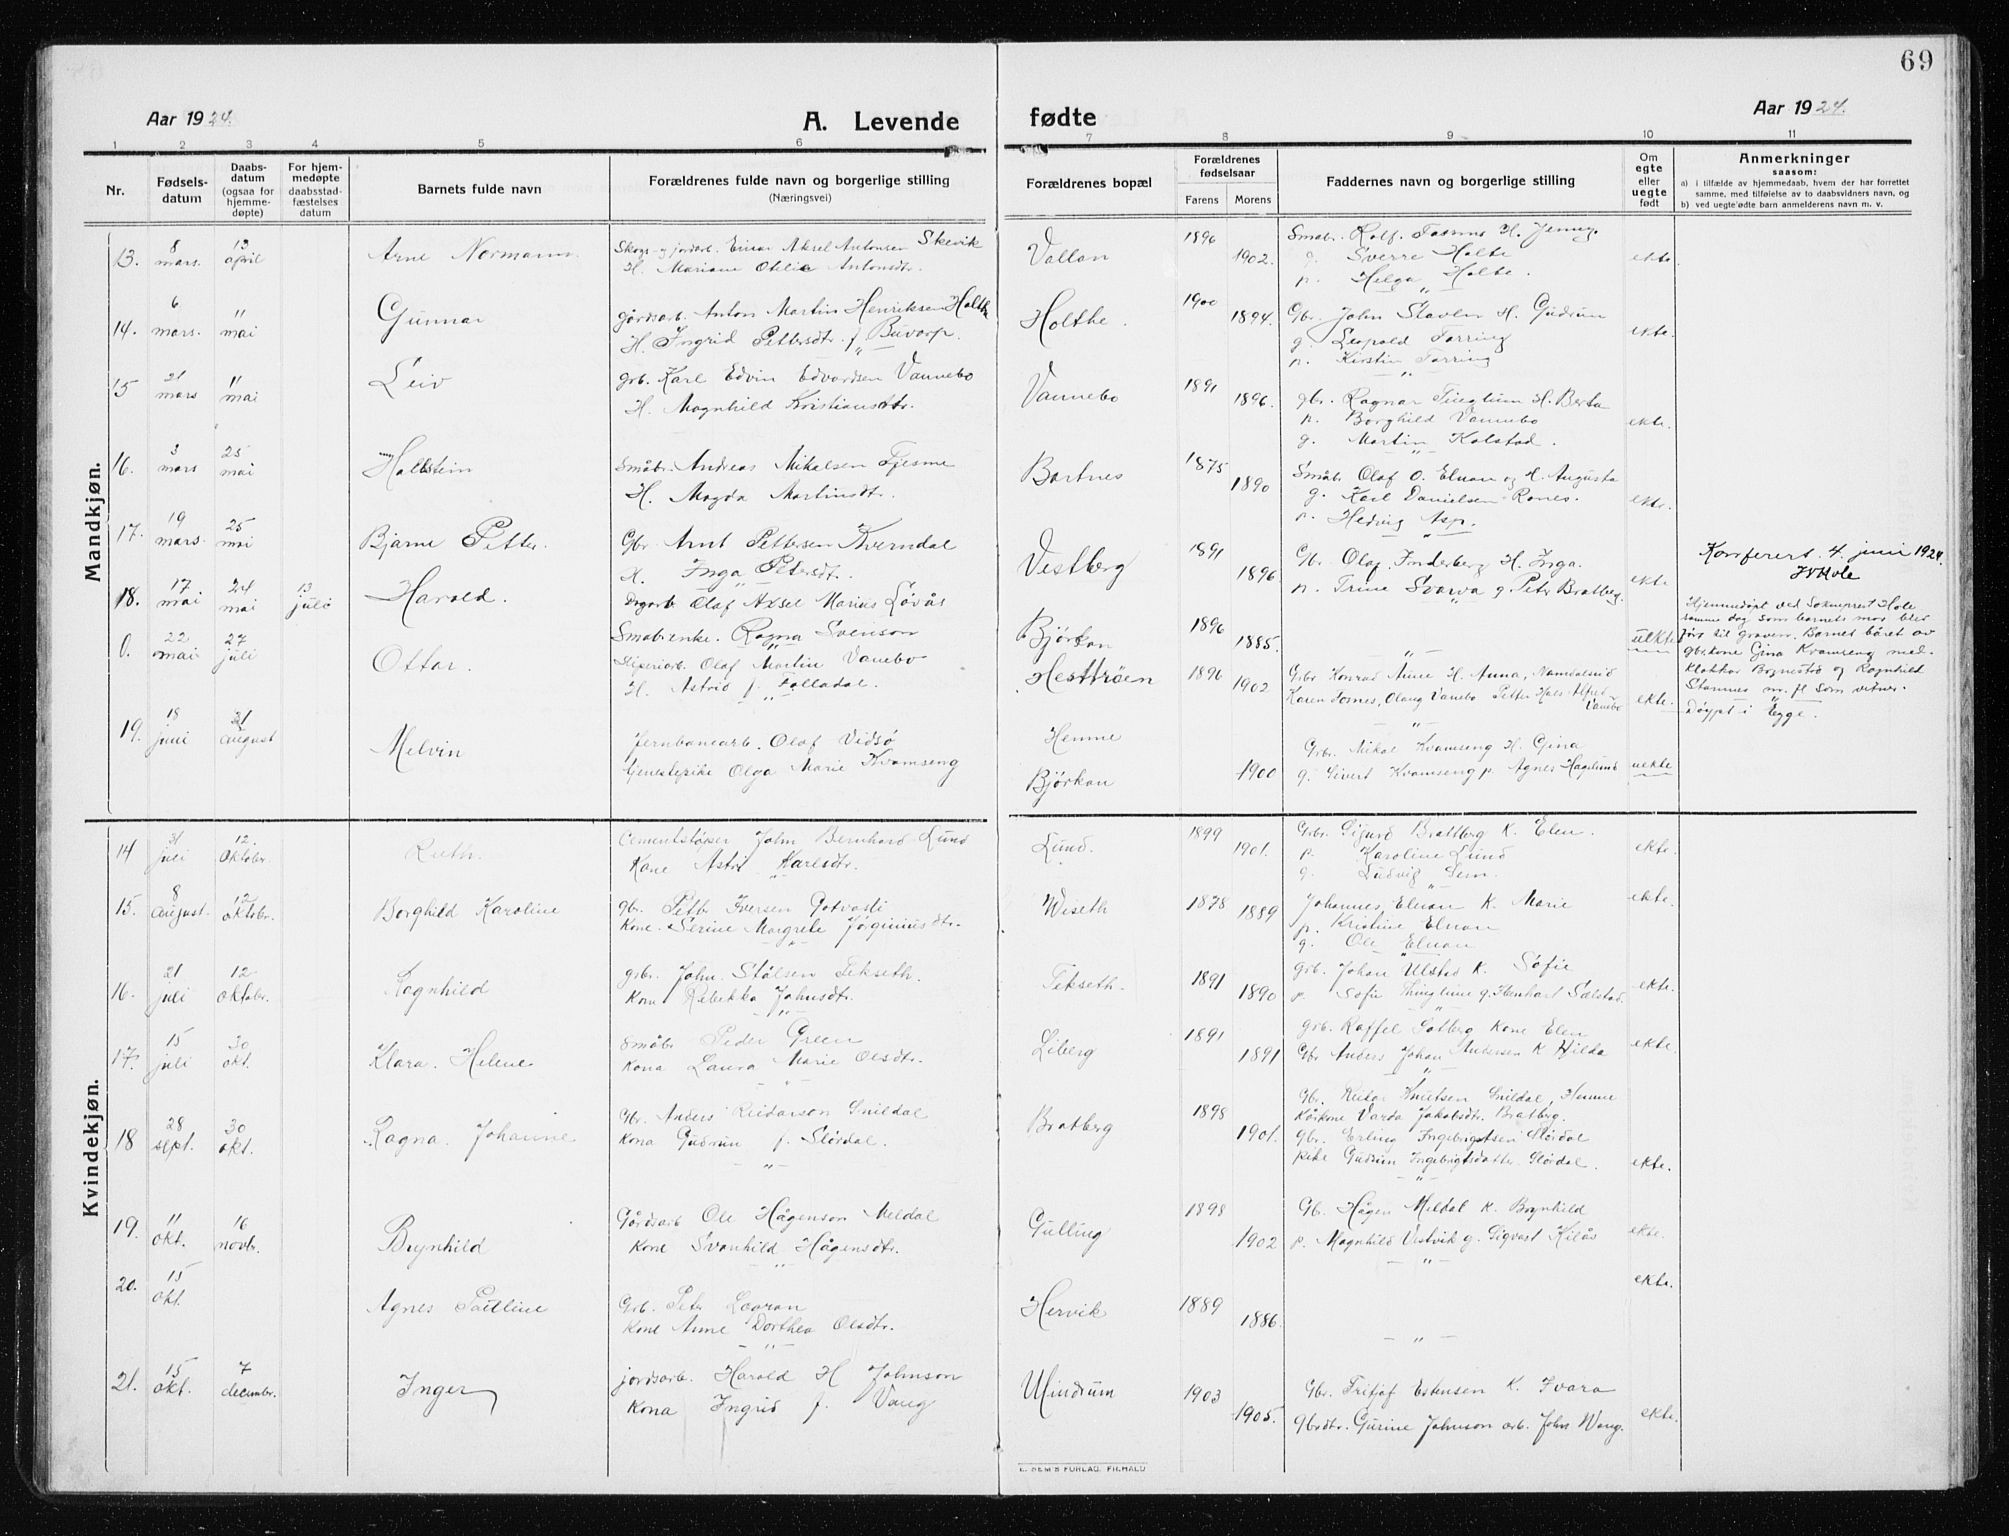 69
Aar 1924.
A. Levende fødte
Aar 1924.
1 2 3 4 5 6 7 8 9 10 11
Nr.
Fødsels-
datum
Daabs-
datum
(ogsaa for
hjemme-
døpte)
For hjem-
medøpte
daabsstad-
fæstelses
datum
Barnets fulde navn
Forældrenes fulde navn og borgerlige stilling
(Næringsvei)
Forældrenes bopæl
Forældrenes
fødselsaar
Farens Morens
Faddernes navn og borgerlige stilling
Om
egte
eller
uegte
født
Anmerkninger
saasom:
a) i tilfælde av hjemmedaab, hvem der har forrettet
samme, med tilføielse av to daabsvidners navn, og
b) ved uegte fødte barn anmelderens navn m. v.
Mandkjøn.
13. 8 mars. 13 april Arne Normann.
Skogs- og jordarb. Einar Aksel Antonsen Skevik
H. Mariane Otelie Antonsdtr.
Vollan 1896 1902.
Smabr. Rolf H. Jenny.
g. Sverre Holte
p. Helga Holte.
ekte
14. 6 mars. 11 mai Gunnar
gårdsarb. Anton Martin Henriksen Holthe
H. Ingrid Pettersdtr. f. Buvarp.
Holthe. 1900 1894.
Gbr. John Staven H. Gudrun
g. Leopold Tørring
p. Kirstin Tørring
ekte.
15 21 mars 11 mai Leiv
grb. Karl Edvin Edvardsen Vannebo
H. Magnhild Kristiansdtr.
Vannebo 1891 1896.
gbr. Ragnar Tinglum H. Berta
p. Borghild Vannebo
g. Martin Kolstad.
ekte.
16. 3 mars 25 mai Hallstein
Småbr. Andreas Mikalsen Fjesme
H. Magda Martinsdtr.
Bartnes 1875 1890
Småb. Olaf O. Elnan og H. Augusta
g. Karl Danielsen Rones.
p. Hedvig Asp.
ekte.
17. 19 mars. 25 mai Bjarne Petter.
Gbr. Arnt Pettersen Kverndal
H. Inga Petersdtr.
Vestberg 1891 1896.
Gbr. Olaf Inderberg H. Inga.
p. Trine Svarva g. Peter Bratberg.
ekte
Konferert. 4. juni 1924.
18. 17 mai 24 mai 13 juli Harald.
Dagarb. Olaf Aksel Marius Løvås
Småbr.enke. Ragna Svenson
Bjørkan 1896 1885.
uekte
Hjemmedøpt ved Sokneprest Hole
samme dag som barnets mor blev
ført til graven. Barnet båret av
gbr.kone Gina Kvamseng med
Klokkar Brynestø og Ragnhild
Stamnes m. fl. som vitner.
0. 22 mai 27 juli Ottar.
Olaf Martin Vanebo
H. Astrid f. Folladal.
Hesttrøen 1896 1902
Gbr Konrad Anne H. Anna, Namdalseid
Karen Fornes, Olaug Vanebo Petter Hals Alfred
Vanebo
ekte.
Døypt i Egge.
19. 18 juni 31 august Melvin
Jernbanearb. Olaf Vidsø
tjenestepike Olga Marie Kvamseng
Hemne
Bjørkan 1900
Grb. Mikal Kvamseng H. Gina
g. Sivert Kvamseng p. Agnes Hagelund
uekte
Kvindekjøn.
14 31 juli 12. oktober Ruth.
Cementstøper John Bernhard Lund
Kone Astri Karlsdtr.
Lund. 1899 1901.
Grb. Sigurd Bratberg K. Elen.
p. Karoline Lund
g. Ludvig Sem.
ekte.
15. 8 august. 12 oktobr. Borghild Karoline
gbr. Petter Iversen Gotvasli
kone. Serine Margrete Jørginiusdtr.
Wiseth 1878 1889
Johannes Elnan K. Marie
p. Kristine Elnan
g. Ole Elnan
ekte.
16. 21 juli 12 oktobr. Ragnhild
grb. John. Stålsen Tekseth.
Kone Rebekka Johnsdtr.
Tekseth. 1891 1890
grb. Johan Ulstad K. Sofie
p. Sofie Thinglum g. Henhart Sælstad.
ekte.
17. 15 juli 30 okt. Klara. Helene
Småbr. Peder Green
kona Laura Marie Olsdtr.
Liberg 1891 1891
grb. Raffel Solberg Kone Elen
Gbr Anders Johan Andersen K. Hilda
ekte.
18 28 sept. 30 okt. Ragna. Johanne
Gbr. Anders Reidarson Snildal
kona Gudrun f. Slørdal.
Bratberg 1898 1901.
Gbr. Reidar Knutsen Snildal, Hemne
Kårkone Varda Jakobsdtr. Bratberg.
Gbr. Erling Ingebrigtsen Slørdal
pike Gudrun Ingebrigtsdatter Slørdal.
ekte.
19. 11 okt. 16 novbr. Brynhild
Gårdsarb Ole Hågenson Meldal
Kone Svanhild Hågensdtr.
Gulling 1898 1902
Gb. Hågen Meldal K. Brynhild
p. Magnhild Vestvik g. Sigvast Kilås
ekte.
20. 15 okt. Agnes Pauline
Grb. Peter Loaran
Kone Anne Dorthea Olsdtr.
Hervik 1889 1886.
ekte.
21. 15 okt. 7 decembr. Inger
jordsarb. Harald H Johnson
Kona Ingrid f. Vang
Windrum 1903 1905.
Gbr. Fritjof Estensen K. Ivara
Gbrdtr. Gurine Johnson arb. John Wang.
ekte.
E. SEM'S FORLAG, FR.HALD